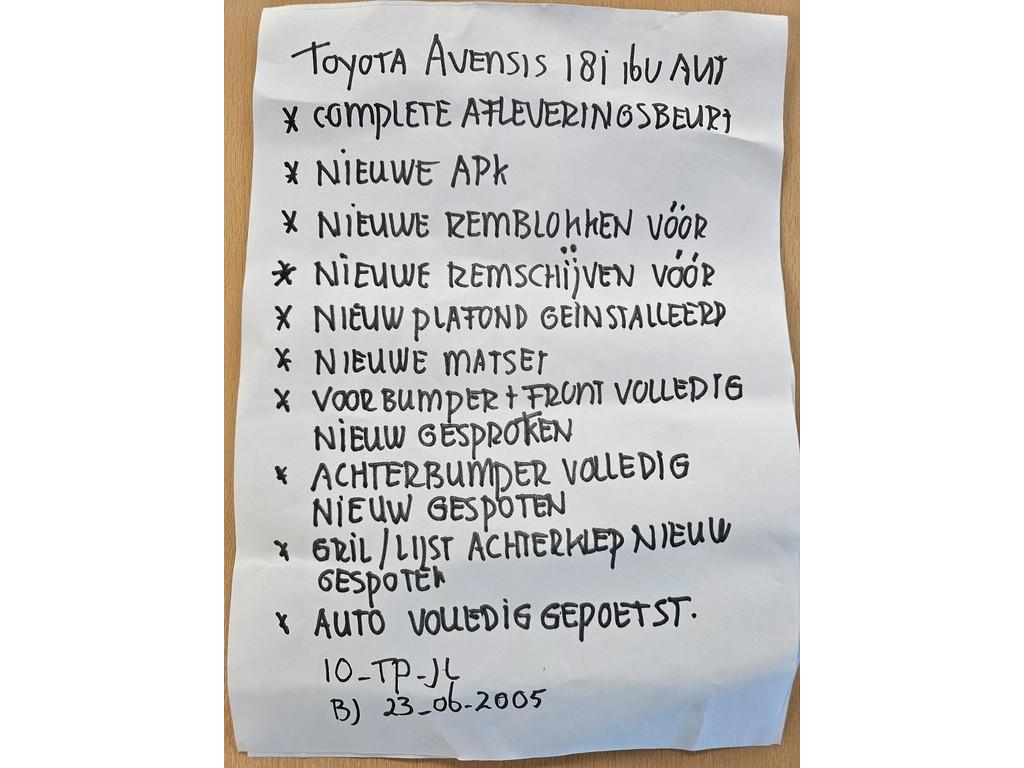 TOYOTA AVENSIS 18i 16V AUT
* COMPLETE AFLEVERINGSBEURT
* NIEUWE APK
* NIEUWE REMBLOKKEN VÓÖR
* NIEUWE REMSCHIJVEN VÓÓR
* NIEUW PLAFOND GEINSTALLEERD
* NIEUWE MATSET
* VOORBUMPER + FRONT VOLLEDIG
NIEUW GESPROTEN
* ACHTERBUMPER VOLLEDIG
NIEUW GESPOTEN
* GRIL/LIJST ACHTERKLEP NIEUW
GESPOTEN
* AUTO VOLLEDIG GEPOETST.
10-TP-JL
B) 23-06-2005